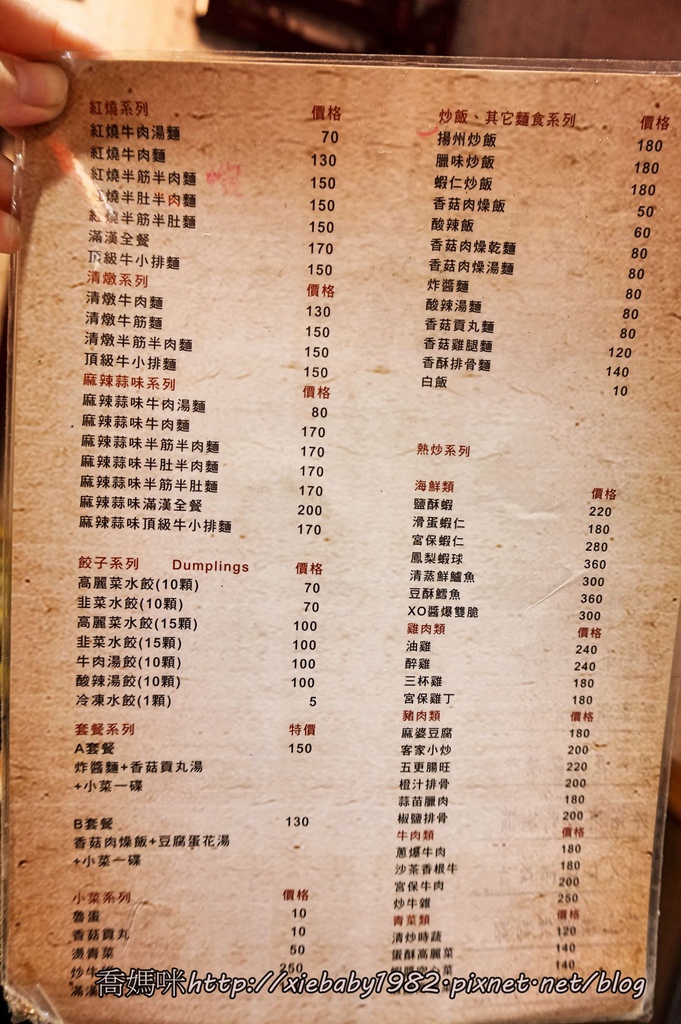 紅燒系列 價格
紅燒牛肉湯麵 70
紅燒牛肉麵 130
紅燒半筋半肉麵 150
紅燒半肚半肉麵 150
紅燒半筋半肚麵 150
滿漢全餐 170
頂級牛小排麵 150
清燉系列 價格
清燉牛肉麵 130
清燉牛筋麵 150
清燉半筋半肉麵 150
頂級牛小排麵 150
麻辣蒜味系列 價格
麻辣蒜味牛肉湯麵 80
麻辣蒜味牛肉麵 170
麻辣蒜味半筋半肉麵 170
麻辣蒜味半肚半肉麵 170
麻辣蒜味半筋半肚麵 170
麻辣蒜味滿漢全餐 200
麻辣蒜味頂級牛小排麵 170
餃子系列 Dumplings 價格
高麗菜水餃(10顆) 70
韭菜水餃(10顆) 70
高麗菜水餃(15顆) 100
韭菜水餃(15顆) 100
牛肉湯餃(10顆) 100
酸辣湯餃(10顆) 100
冷凍水餃(1顆) 5
套餐系列 特價
A套餐 150
炸醬麵+香菇貢丸湯
+小菜一碟
B套餐 130
香菇肉燥飯+豆腐蛋花湯
+小菜一碟
小菜系列 價格
魯蛋 10
香菇貢丸 10
燙青菜 50
炒牛 250
滿漢
炒飯、其它麵食系列 價格
揚州炒飯 180
臘味炒飯 180
蝦仁炒飯 180
香菇肉燥飯 50
酸辣飯 60
香菇肉燥乾麵 80
香菇肉燥湯麵 80
炸醬麵 80
酸辣湯麵 80
香菇貢丸麵 80
香菇雞腿麵 120
香酥排骨麵 140
白飯 10
熱炒系列
海鮮類 價格
鹽酥蝦 220
滑蛋蝦仁 180
宮保蝦仁 280
鳳梨蝦球 360
清蒸鮮鱸魚 300
豆酥鱈魚 360
XO醬爆雙脆 300
雞肉類 價格
油雞 240
醉雞 240
三杯雞 180
宮保雞丁 180
豬肉類 價格
麻婆豆腐 180
客家小炒 200
五更腸旺 220
橙汁排骨 200
蒜苗臘肉 180
椒鹽排骨 200
牛肉類 價格
蔥爆牛肉 180
沙茶香根牛 180
宮保牛肉 200
炒牛雜 250
青菜類 價格
清炒時蔬 120
蛋酥高麗菜 140
菜 140
喬媽咪http://xiebaby1982.pixnet.net/blog